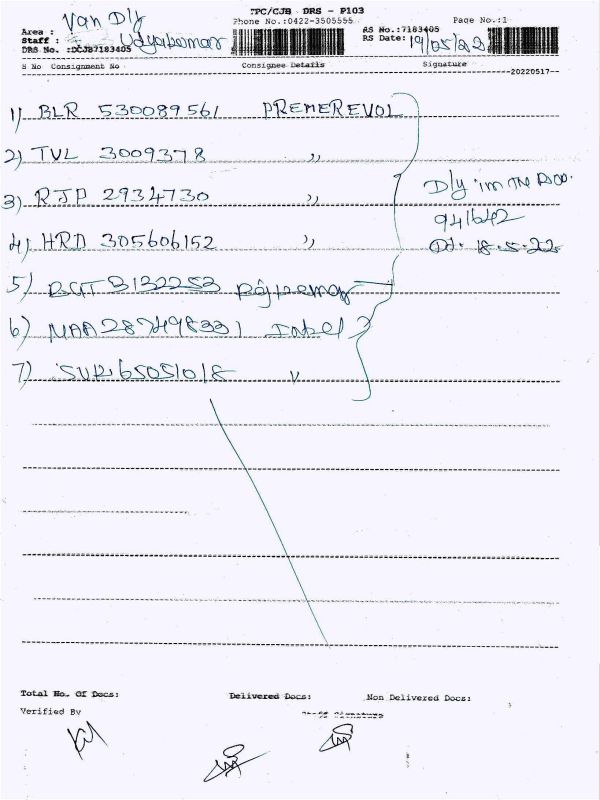 TPC/CJB DRS - P103
Van Dly
Phone No.:0422-3505555
Page No.:1
Area :
Staff : Udyakumar
RS No.:7183405
RS Date: 19/05/22
DRS No. :DCJB7183405
S No Consignment No Consignee Details Signature
20220517
1) BLR 530089561 PREMEREVOL
2) TVL 3009378 ,,
3) RJP 2934730 ,,
4) HRD 305606152 ,,
Dly in the
941642
Dt. 18.5.22
5) BGT 3132253 Rajkumar
6) MAA 287498331
7) SUR 65051018 "
Total No. Of Docs: Delivered Docs: Non Delivered Docs:
Verified By Staff Signature